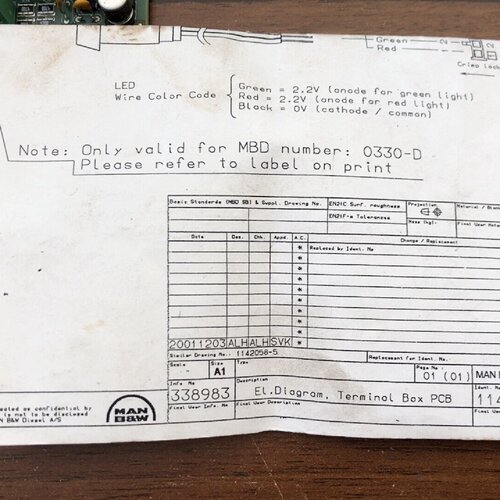 Green
Red
Crimp lock
LED
Wire Color Code
Green = 2.2V (anode for green light)
Red = 2.2V (anode for red light)
Black = 0V (cathode / common)
Note: Only valid for MBD number: 0330-D
Please refer to label on print
Basic Standards (MBD SB) & Suppl. Drawing No.
EN21C Surf. roughness
EN21F-a Tolerances
Projection
Mass (kg):
Material / Blank
Final User Mater
Date Des. Chk. Appd. A.C. Change / Replacement
* Replaced by Ident. No
*
*
*
*
*
*
*
20011203 ALH ALH SVK *
Similar Drawing No.: 1142058-5
Replacement for Ident. No.:
Scale
-
Size
A1
Type
Page No
01 (01)
MAN
Info No
338983
Description
El.Diagram, Terminal Box PCB
Ident. No
114
Final User Info. No
Final User Description
Final User Ident.
eated as confidential by
is not to be disclosed
N B&W Diesel A/S
MAN
B&W